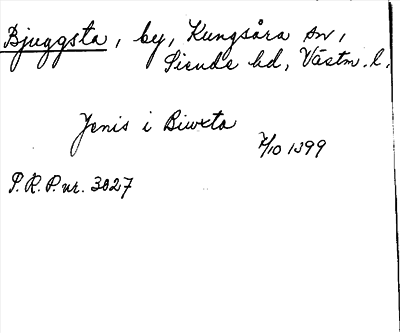 Bjuggsta, by, Kungsåra sn,
Siende hd, Västm. l.
Jenis i Biuxta
7/10 1399
P.R.P. nr. 3027